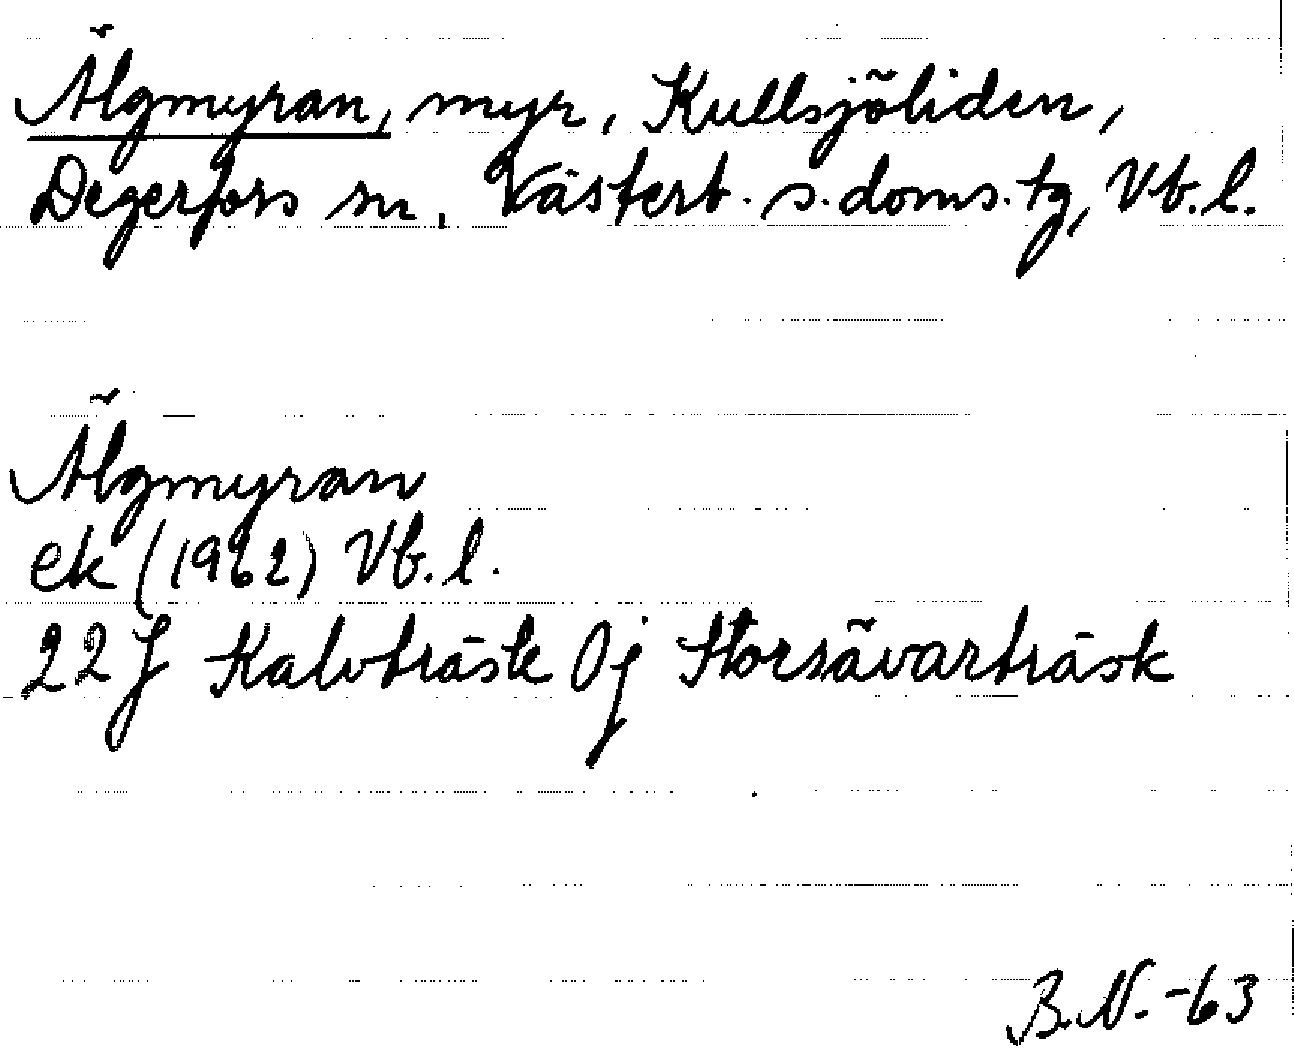 Älgmyran, myr, Kullsjöliden,
Degerfors sn, Västerb. s. doms. tg, Vb. l.
Älgmyran
ek (1962) Vb. l.
22 J Kalvträsk 0j Storsävarträsk
B.N. -63